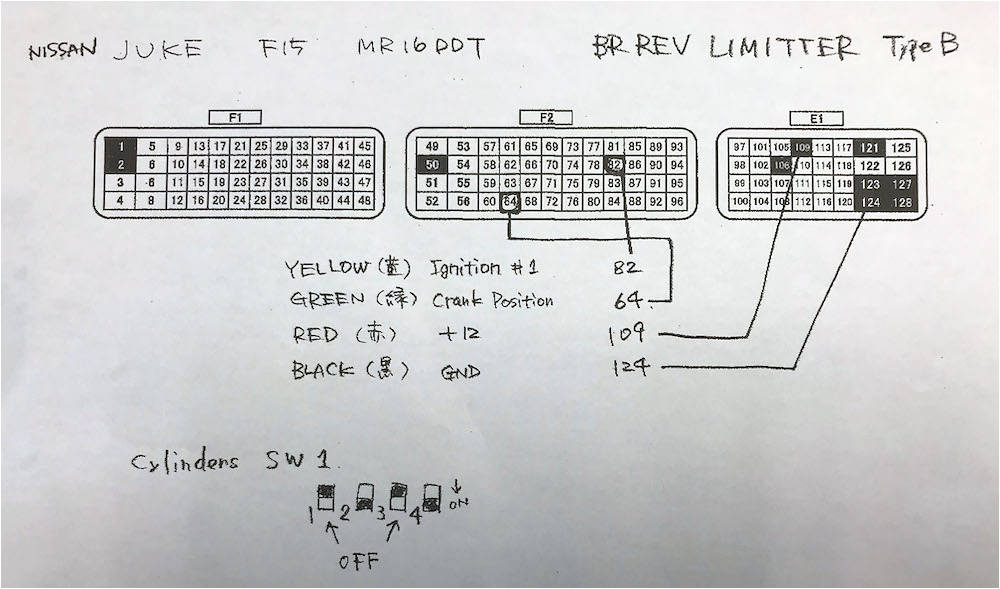 NISSAN JUKE F15 MR16DDT BR REV LIMITTER Type B
F1 F2 E1
1 5 9 13 17 21 25 29 33 37 41 45 49 53 57 61 65 69 73 77 81 85 89 93 97 101 105 109 113 117 121 125
2 6 10 14 18 22 26 30 34 38 42 46 50 54 58 62 66 70 74 78 82 86 90 94 98 102 106 110 114 118 122 126
3 6 11 15 19 23 27 31 35 39 43 47 51 55 59 63 67 71 75 79 83 87 91 95 99 103 107 111 115 119 123 127
4 8 12 16 20 24 28 32 36 40 44 48 52 56 60 64 68 72 76 80 84 88 92 96 100 104 108 112 116 120 124 128
YELLOW (黄) Ignition #1 82
GREEN (緑) Crank Position 64
RED (赤) +12 109
BLACK (黒) GND 124
Cylinders SW 1.
1 2 3 4 ↓ ON
OFF